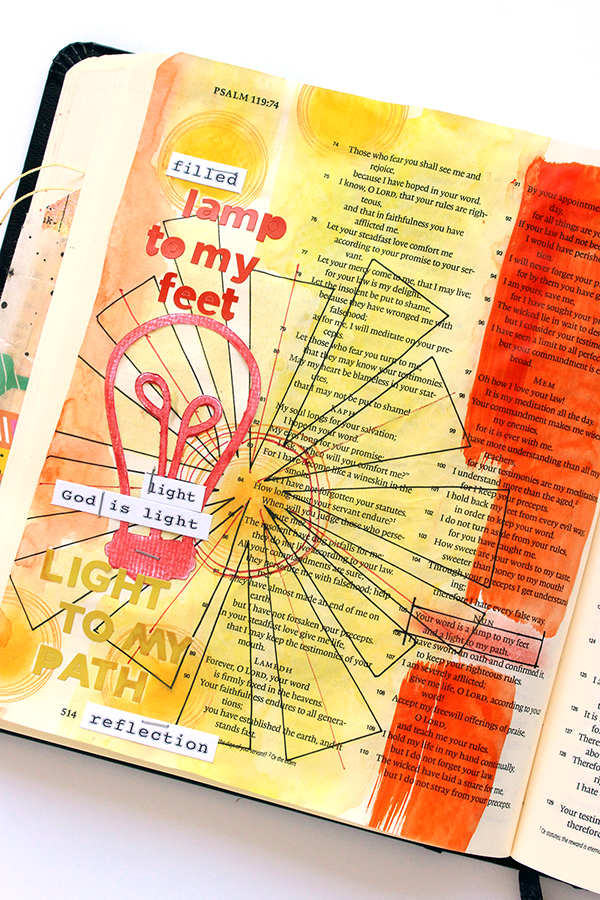 PSALM 119:74
filled
lamp
to my
feet
light
God is light
LIGHT
TO MY
PATH
514
reflection
74 Those who fear you shall see me and
rejoice,
because I have hoped in your word.
75 I know, O LORD, that your rules are righ-
teous,
and that in faithfulness you have
afflicted me.
76 Let your steadfast love comfort me
according to your promise to your ser-
vant.
77 Let your mercy come to me, that I may live;
for your law is my delight.
78 Let the insolent be put to shame,
because they have wronged me with
falsehood;
as for me, I will meditate on your pre-
cepts.
79 Let those who fear you turn to me,
that they may know your testimonies.
80 May my heart be blameless in your stat-
utes,
that I may not be put to shame!
KAPH
My soul longs for your salvation;
I hope in your word.
My eyes long for your promise;
I ask, "When will you comfort me?"
For I have become like a wineskin in the
smoke,
yet I have not forgotten your statutes.
84 How long must your servant endure?
When will you judge those who perse-
cute me?
The insolent have dug pitfalls for me;
they do not live according to your law.
All your commandments are sure;
they persecute me with falsehood; help
They have almost made an end of me on
earth,
but I have not forsaken your precepts.
In your steadfast love give me life,
that I may keep the testimonies of your
mouth.
LAMEDH
89 Forever, O LORD, your word
is firmly fixed in the heavens.
90 Your faithfulness endures to all genera-
tions;
you have established the earth, and it
stands fast.
91 By your appointment
day,
for all things are
92 If your law had not been
I would have perished
tion.
93 I will never forget your
for by them you have
94 I am yours; save me,
for I have sought your
95 The wicked lie in wait to
but I consider your testimonies
96 I have seen a limit to all
but your commandment is
broad.
MEM
97 Oh how I love your law!
It is my meditation all the day.
98 Your commandment makes me
my enemies,
for it is ever with me.
99 have more understanding than all my
teachers,
for your testimonies are my meditation
100 I understand more than the aged,
for I keep your precepts.
101 I hold back my feet from every evil way,
in order to keep your word.
102 I do not turn aside from your rules,
for you have taught me.
103 How sweet are your words to my taste,
sweeter than honey to my mouth!
104 Through your precepts I get understand-
ing;
therefore I hate every false way.
NUN
105 Your word is a lamp to my feet
and a light to my path.
106 I have sworn an oath and confirmed it,
to keep your righteous rules.
107 I am severely afflicted;
give me life, O LORD, according to your
word!
108 Accept my freewill offerings of praise,
O LORD,
and teach me your rules.
109 I hold my life in my hand continually,
but I do not forget your law.
110 The wicked have laid a snare for me,
but I do not stray from your precepts.
129 Your testimonies
therefore